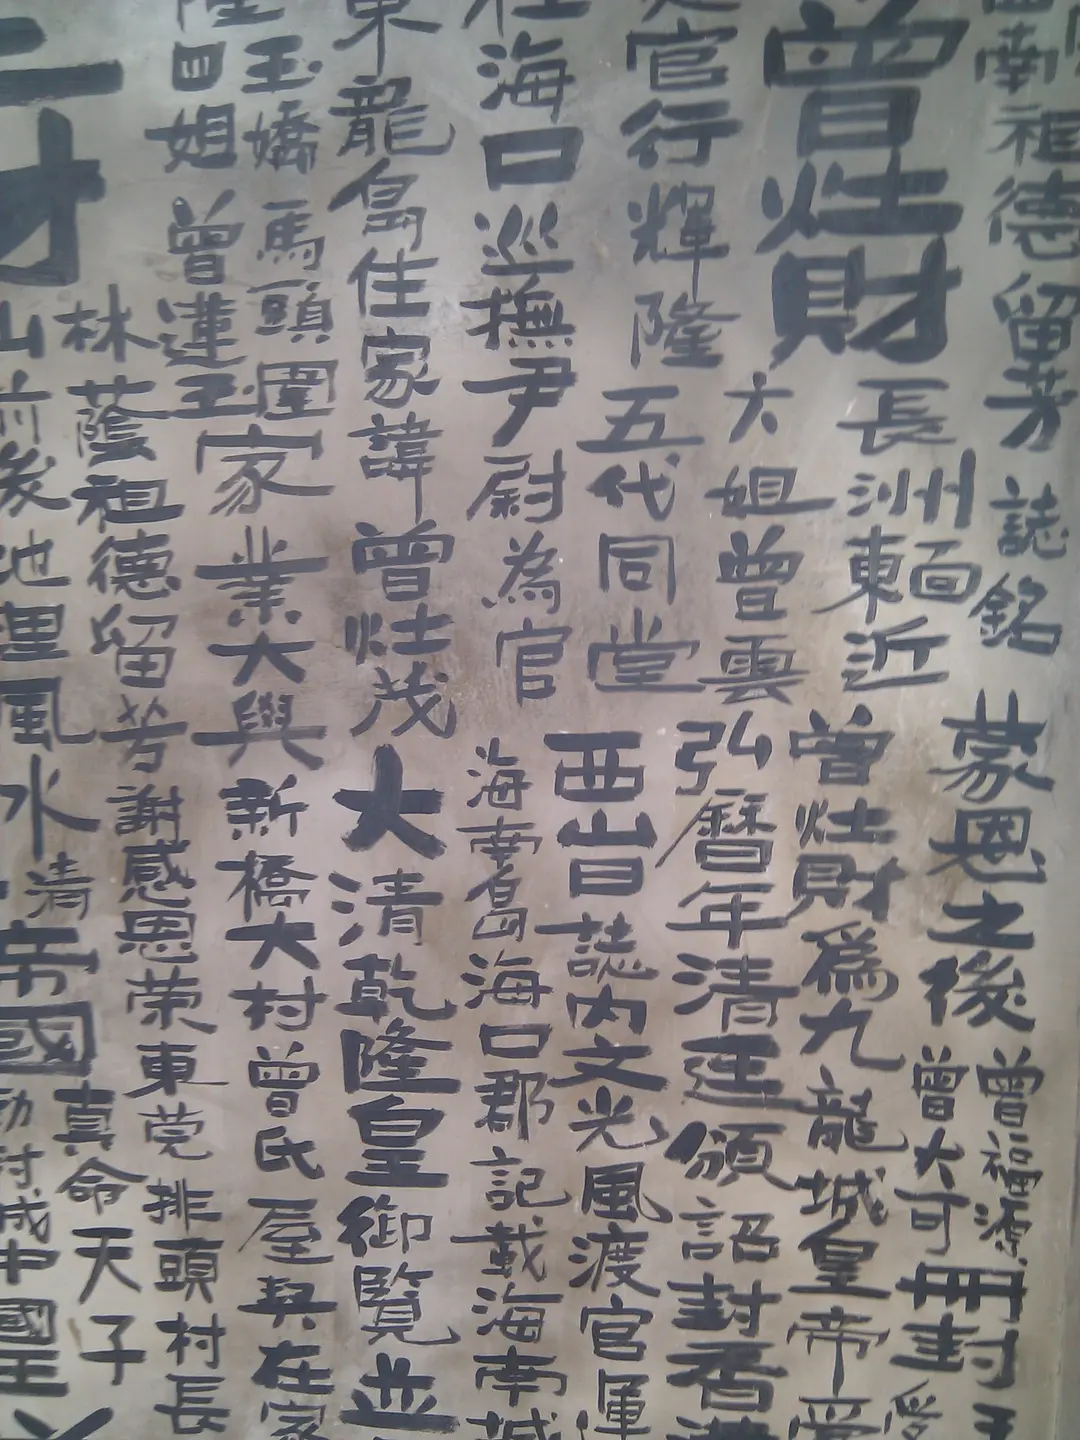 南祖德留芳誌銘
蒙恩之後
曾福源
曾大可冊封
曾灶財
長洲東面近
曾灶財為九龍城皇帝
大姐曾雲
弘曆年清廷頒詔封香
官行輝隆
五代同堂
西貢誌內文光風渡官
海口巡撫尹尉為官
海南島海口郡記載海南
東龍島住家諱曾灶茂
大清乾隆皇御覽並
玉嬌馬頭圍
四姐曾蓮玉
家業大與新橋大村曾氏屋契在家
林蔭祖德留芳謝感恩荣東莞排頭村長
才
山前後池理風水
清真命天子
帝國
討成中國